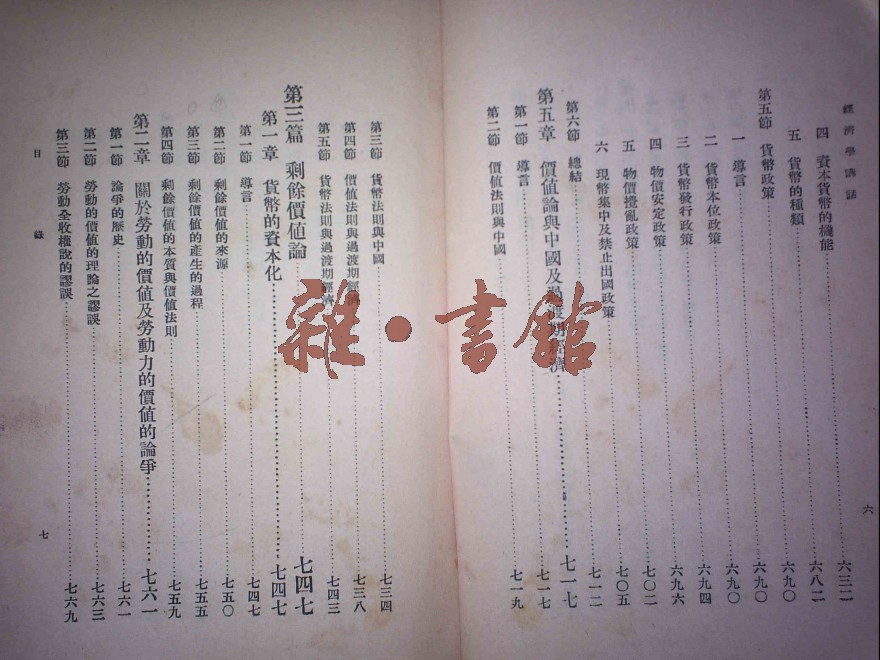 經濟學講話
四 資本貨幣的機能……六三二
五 貨幣的種類……六八二
第五節 貨幣政策……六九〇
一 導言……六九〇
二 貨幣本位政策……六九四
三 貨幣發行政策……六九六
四 物價安定政策……七〇二
五 物價攪亂政策……七〇五
六 現幣集中及禁止出國政策……七一二
第六節 總結
第五章 價值論與中國及過渡期經濟……七一七
第一節 導言……七一七
第二節 價值法則與中國……七一九
六
第三節 貨幣法則與中國……七三四
第四節 價值法則與過渡期經濟……七三八
第五節 貨幣法則與過渡期經濟……七四三
第三篇 剩餘價値論……七四七
第一章 貨幣的資本化……七四七
第一節 導言……七四七
第二節 剩餘價值的來源……七五〇
第三節 剩餘價值的產生的過程……七五五
第四節 剩餘價值的本質與價值法則……七五九
第二章 關於勞動的價值及勞動力的價值的論爭……七六一
第一節 論爭的歷史……七六一
第二節 勞動的價值的理論之謬誤……七六三
第三節 勞動全收權說的謬誤……七六九
目錄
七
雜·書館